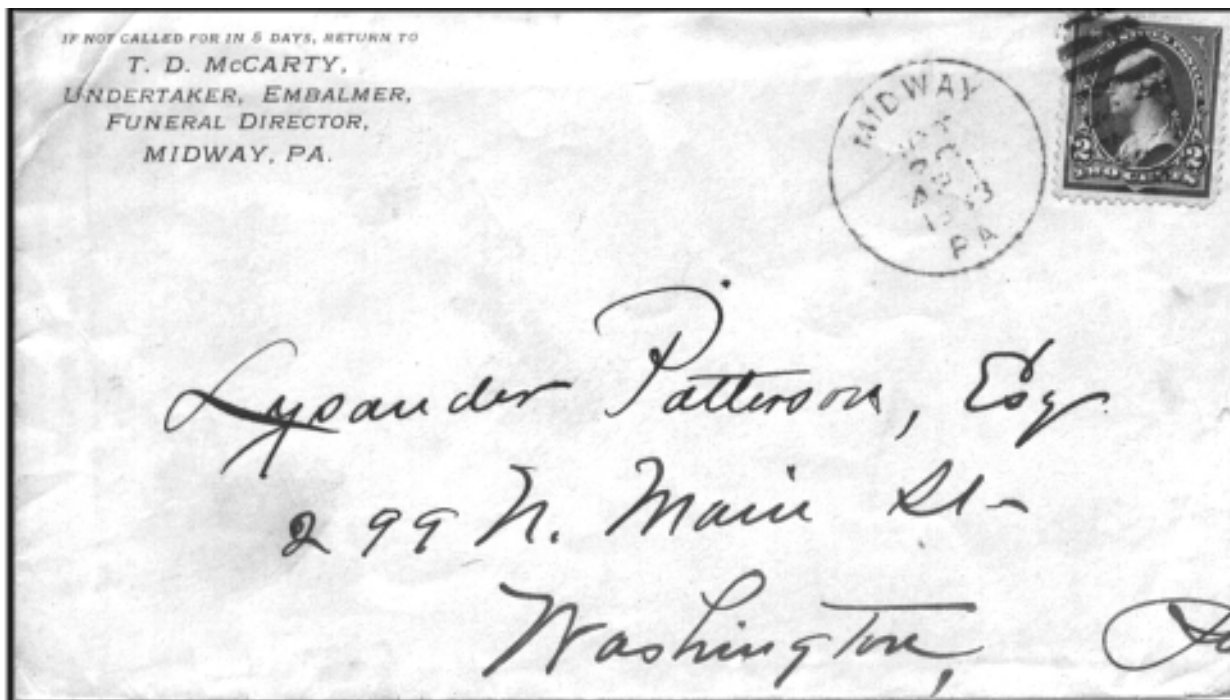 IF NOT CALLED FOR IN 5 DAYS, RETURN TO
T. D. McCARTY,
UNDERTAKER, EMBALMER,
FUNERAL DIRECTOR,
MIDWAY, PA.
MIDWAY
PA
2 TWO CENTS 2
Lysander Patterson, Esq
299 N. Main St-
Washington,